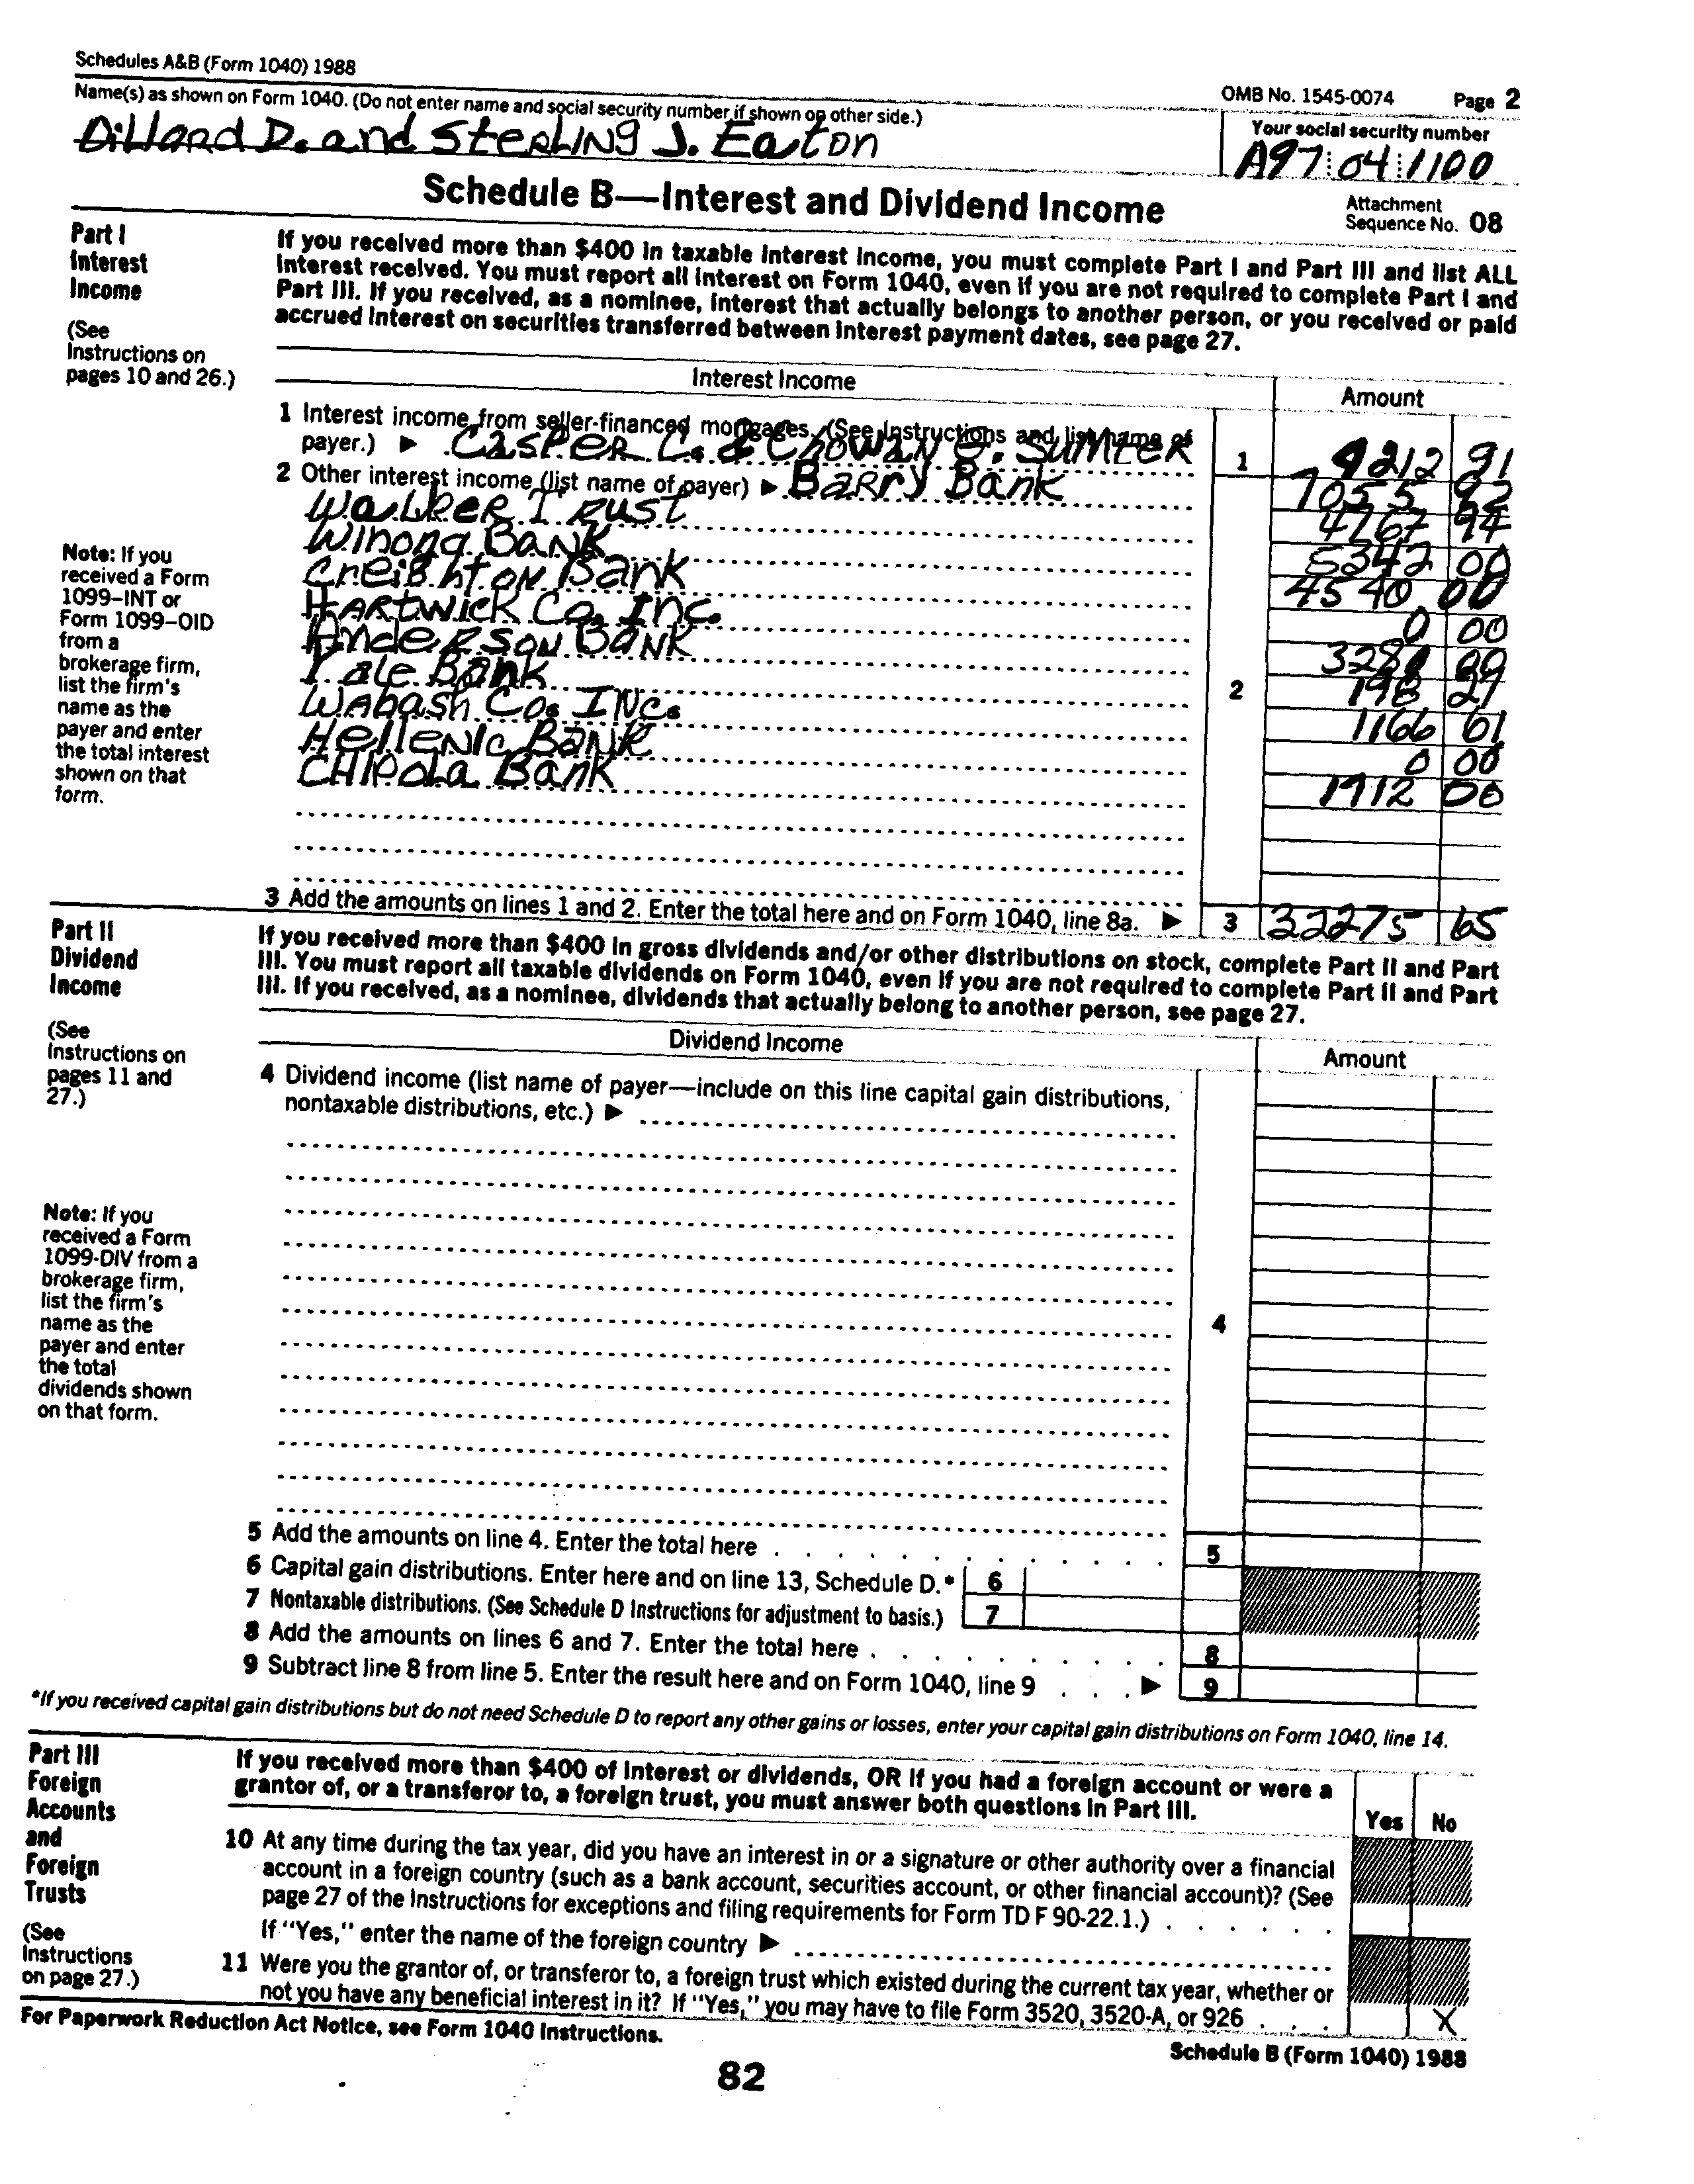 Schedules A&B (Form 1040) 1988
OMB No. 1545-0074 Page 2
Name(s) as shown on Form 1040. (Do not enter name and social security number if shown on other side.)
Your social security number
Dillard D. and Sterling J. Eaton
A97 04 1100
Schedule B—Interest and Dividend Income
Attachment
Sequence No. 08
Part I
Interest
Income
(See
Instructions on
pages 10 and 26.)
If you received more than $400 in taxable interest income, you must complete Part I and Part III and list ALL
interest received. You must report all interest on Form 1040, even if you are not required to complete Part I and
Part III. If you received, as a nominee, interest that actually belongs to another person, or you received or paid
accrued interest on securities transferred between interest payment dates, see page 27.
Interest Income
Amount
1 Interest income from seller-financed mortgages. (See Instructions and list name of
payer.) ▶ Casper C. & Chowan G. Sumter 1 4212 91
2 Other interest income (list name of payer) ▶ Barry Bank 7055 92
Walker Trust 4767 94
Winona Bank 5342 00
Creighton Bank 4540 00
Hartwick Co. Inc. 0 00
Anderson Bank 3280
Yale Bank 2 198 27
Wabash Co. Inc. 1166 61
Hellenic Bank 0 00
Chipola Bank 1912 00
Note: If you
received a Form
1099-INT or
Form 1099-OID
from a
brokerage firm,
list the firm's
name as the
payer and enter
the total interest
shown on that
form.
3 Add the amounts on lines 1 and 2. Enter the total here and on Form 1040, line 8a. ▶ 3 32275 65
Part II
Dividend
Income
(See
Instructions on
pages 11 and
27.)
If you received more than $400 in gross dividends and/or other distributions on stock, complete Part II and Part
III. You must report all taxable dividends on Form 1040, even if you are not required to complete Part II and Part
III. If you received, as a nominee, dividends that actually belong to another person, see page 27.
Dividend Income
Amount
4 Dividend income (list name of payer—include on this line capital gain distributions,
nontaxable distributions, etc.) ▶
Note: If you
received a Form
1099-DIV from a
brokerage firm,
list the firm's
name as the
payer and enter
the total
dividends shown
on that form.
4
5 Add the amounts on line 4. Enter the total here . . . . . . . . . . . . 5
6 Capital gain distributions. Enter here and on line 13, Schedule D.* 6
7 Nontaxable distributions. (See Schedule D Instructions for adjustment to basis.) 7
8 Add the amounts on lines 6 and 7. Enter the total here . . . . . . . . . 8
9 Subtract line 8 from line 5. Enter the result here and on Form 1040, line 9 . . . ▶ 9
*If you received capital gain distributions but do not need Schedule D to report any other gains or losses, enter your capital gain distributions on Form 1040, line 14.
Part III
Foreign
Accounts
and
Foreign
Trusts
(See
Instructions
on page 27.)
If you received more than $400 of interest or dividends, OR if you had a foreign account or were a
grantor of, or a transferor to, a foreign trust, you must answer both questions in Part III.
Yes No
10 At any time during the tax year, did you have an interest in or a signature or other authority over a financial
account in a foreign country (such as a bank account, securities account, or other financial account)? (See
page 27 of the Instructions for exceptions and filing requirements for Form TD F 90-22.1.) . . . . . .
If "Yes," enter the name of the foreign country ▶
11 Were you the grantor of, or transferor to, a foreign trust which existed during the current tax year, whether or
not you have any beneficial interest in it? If "Yes," you may have to file Form 3520, 3520-A, or 926 . . . X
For Paperwork Reduction Act Notice, see Form 1040 Instructions.
Schedule B (Form 1040) 1988
82